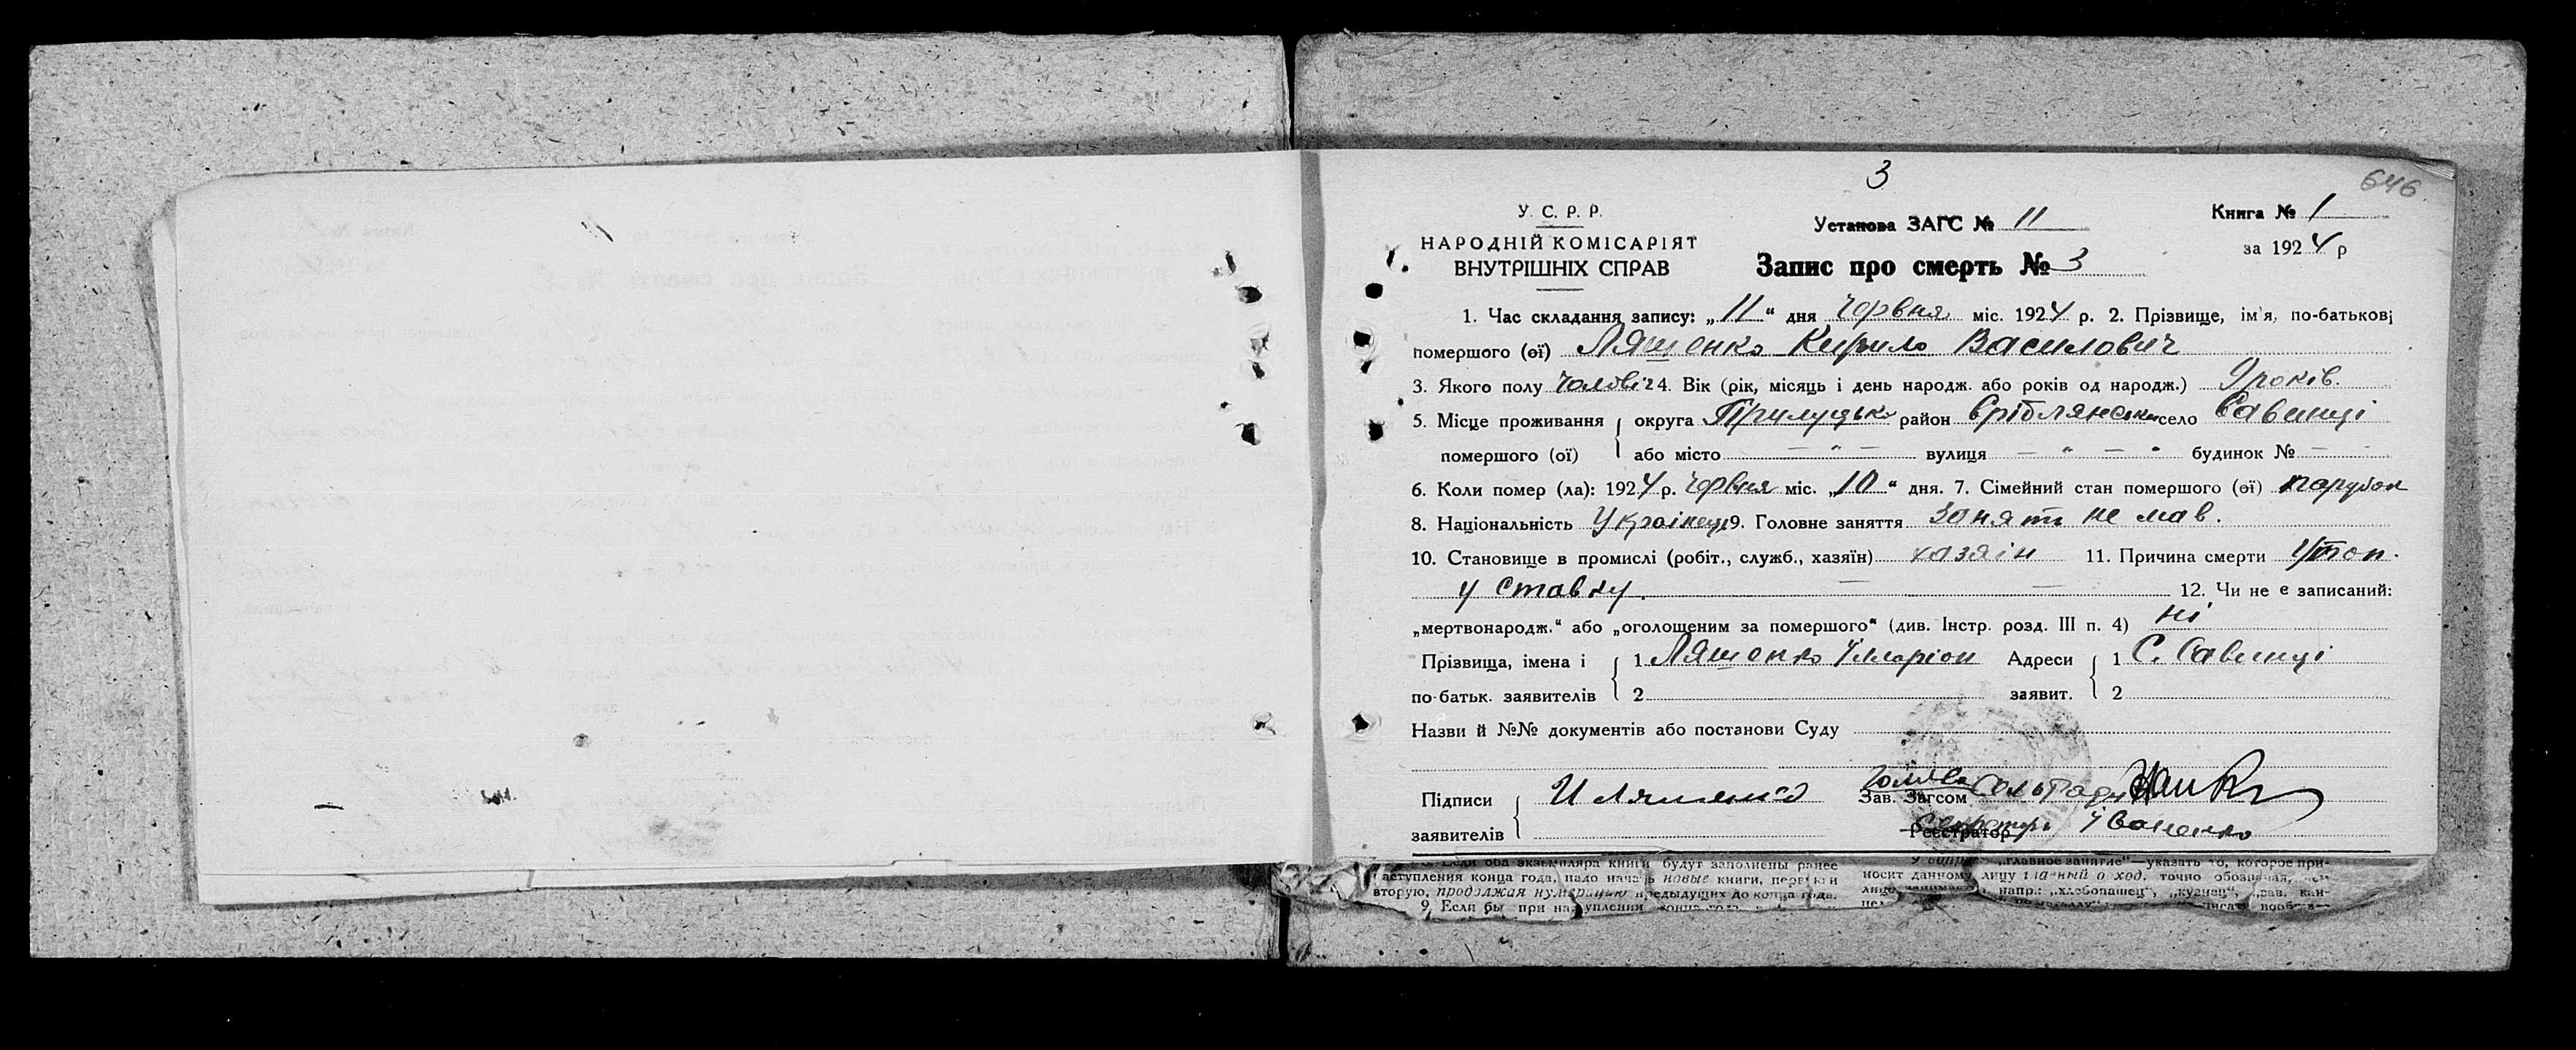 3
646
У. С. Р. Р.
НАРОДНІЙ КОМІСАРІЯТ
ВНУТРІШНІХ СПРАВ
Установа ЗАГС № 11
Запис про смерть № 3
Книга № 1
за 1924 р
1. Час складання запису: „11“ дня Червня міс. 1924 р. 2. Прізвище, ім'я, по-батькові
помершого (ої) Лященко Кирило Василович
3. Якого полу Чоловіч 4. Вік (рік, місяць і день народж. або років од народж.) 9 років.
5. Місце проживання округа Прилуцька район Срібрянськ село Савинці
помершого (ої) або місто — " — вулиця — " — " будинок № —
6. Коли помер (ла): 1924 р. Червня міс. „10“ дня. 7. Сімейний стан помершого (ої) парубок
8. Національність Українець 9. Головне заняття Заняття не мав.
10. Становище в промислі (робіт., служб., хазяїн) хазяін 11. Причина смерти Утоп.
у ставку. — — 12. Чи не є записаний:
„мертвонародж.“ або „оголошеним за помершого“ (див. Інстр. розд. III п. 4) ні
Прізвища, імена і 1 Лященко Ілларіон Адреси 1 С. Савинці
по-батьк. заявителів 2 заявит. 2
Назви й №№ документів або постанови Суду
Підписи И Лященко Зав. Загсом
заявителів Реєстратор Секретарь Іваненко
Если оба экземпляра книги будут заполнены ранее
наступления конца года, надо начать новые книги, первую и
вторую, продолжая нумерацию предыдущих до конца года.
9. Если бы при наступлении конца года
„главное занятие“—указать то, которое при-
носит данному лицу главный доход, точно обозначая,
напр.: „хлебопашец“, „кузнец“, „зав. кан-